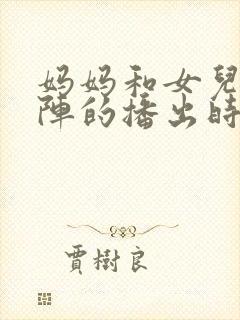 妈妈和女兒
陣的播出時
賈樹良